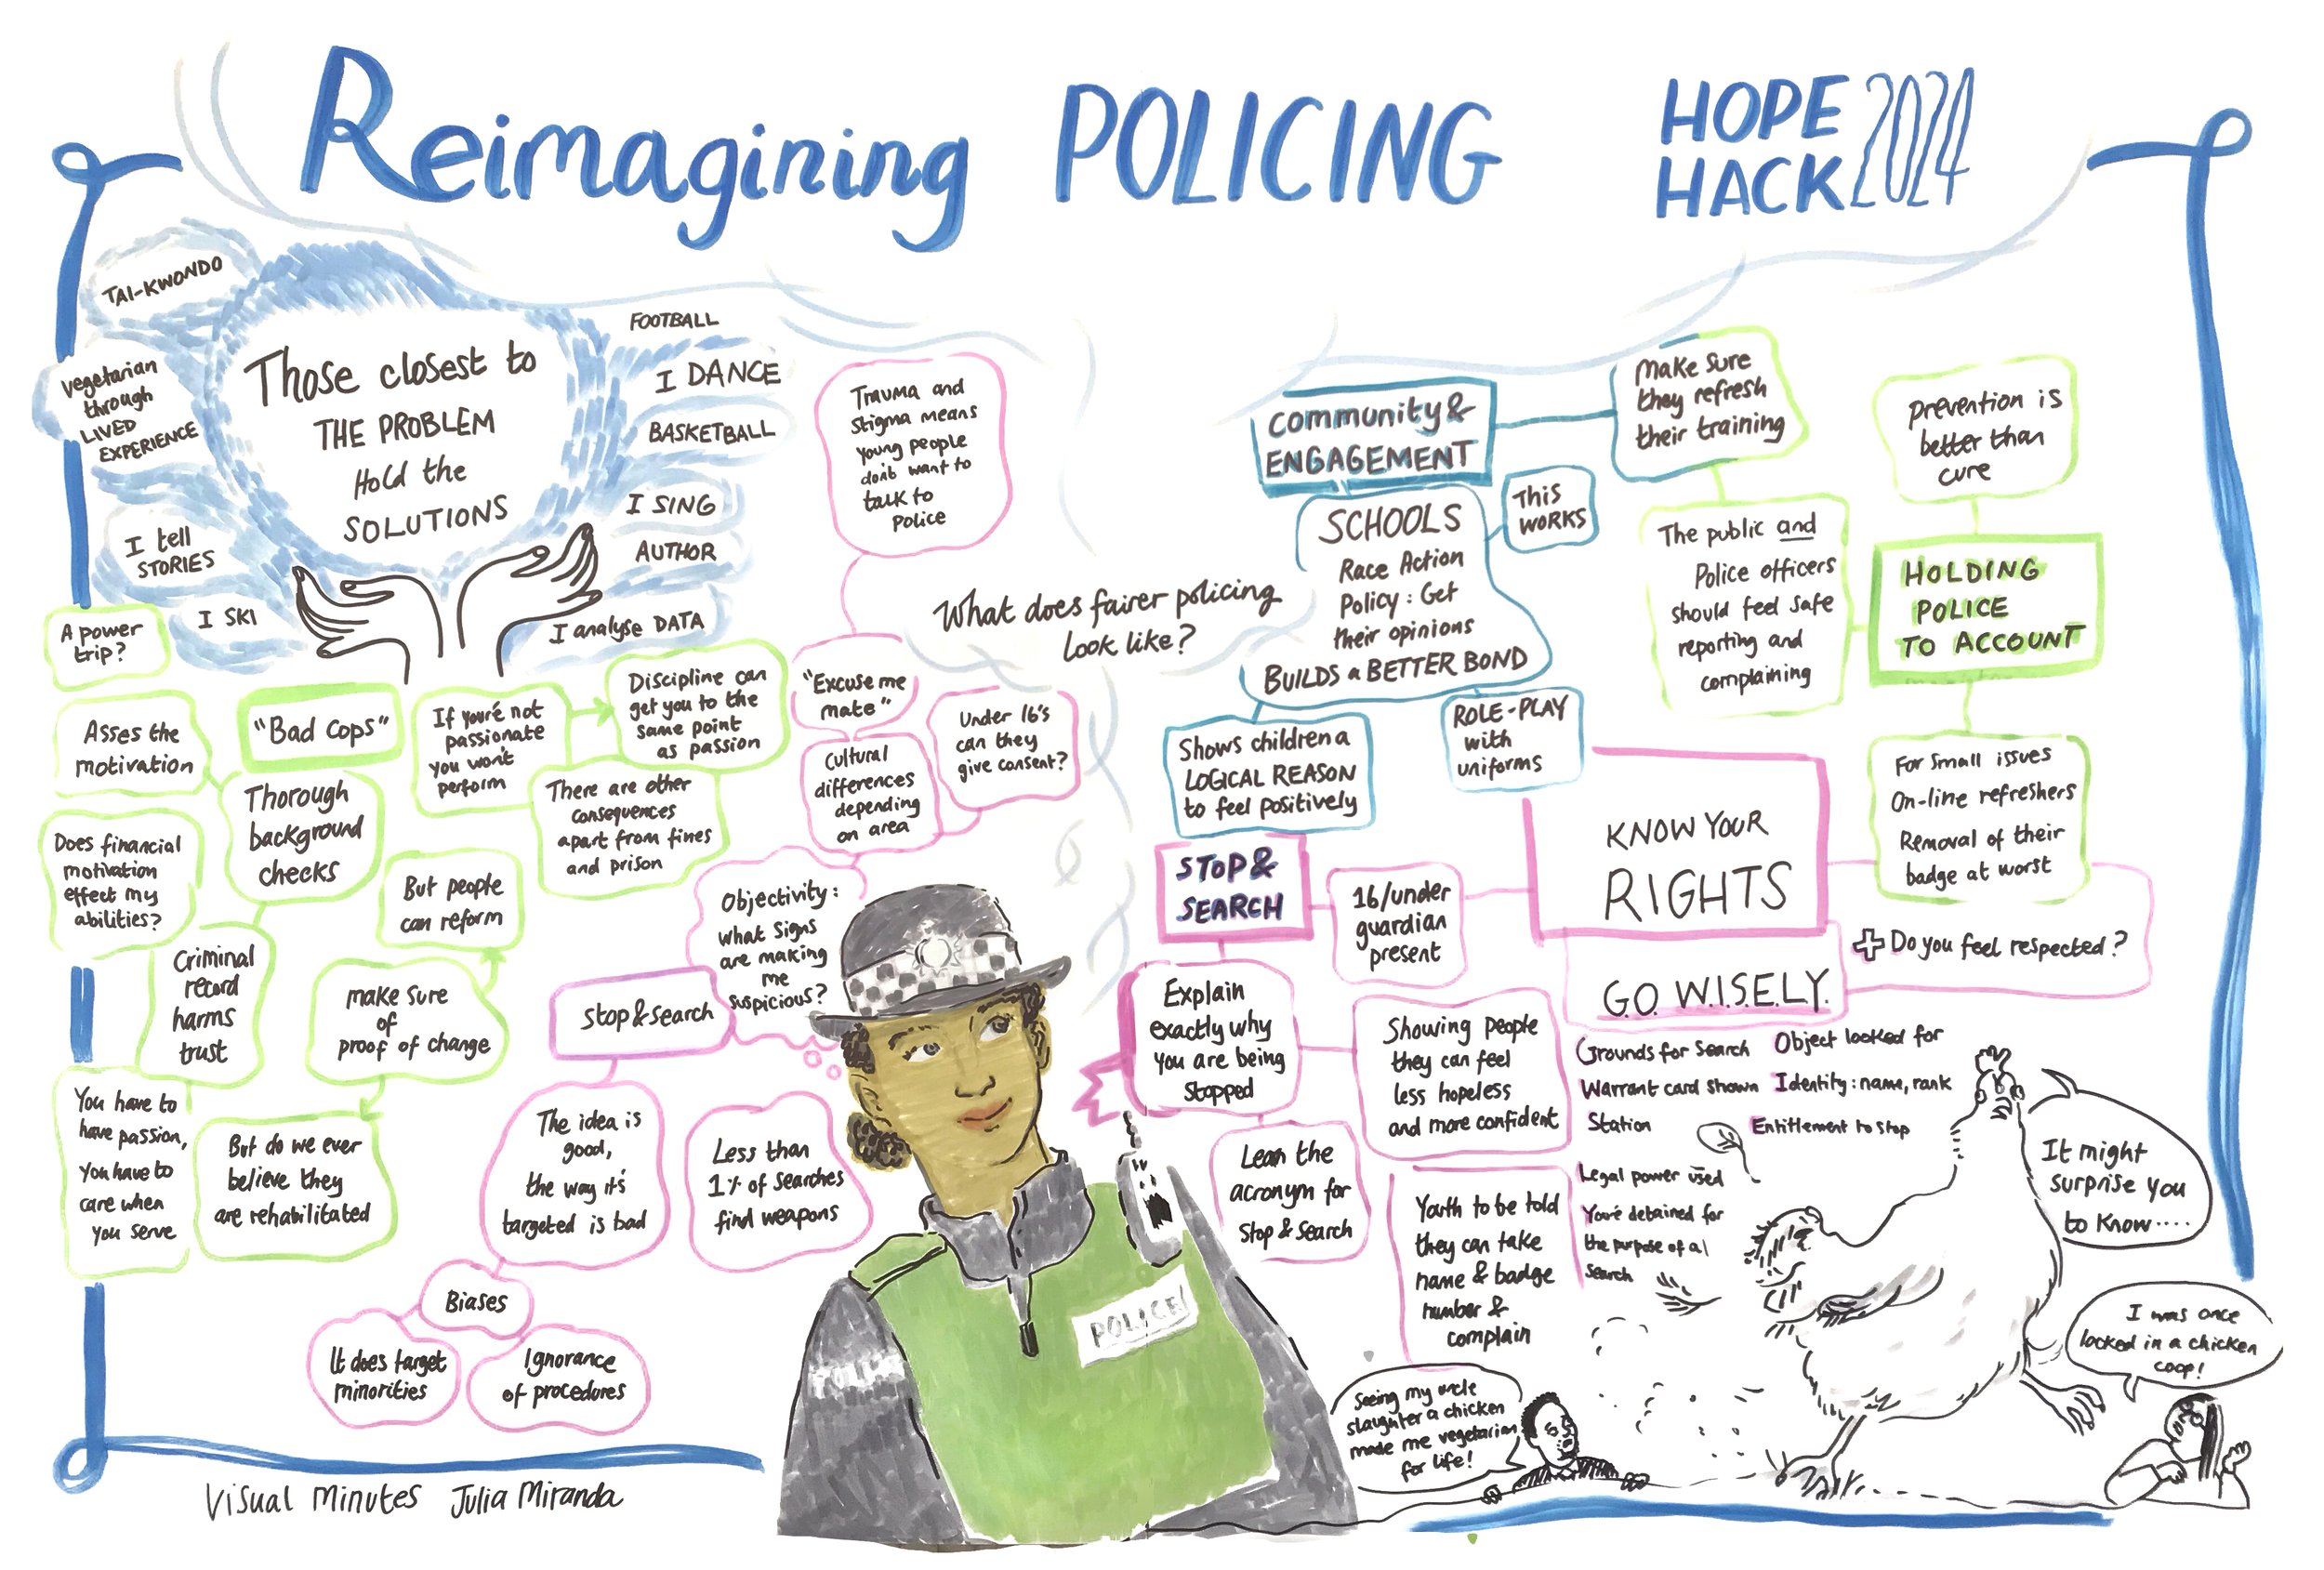 Reimagining POLICING
HOPE
HACK 2024
TAI-KWONDO
vegetarian
through
LIVED
EXPERIENCE
I tell
STORIES
I SKI
Those closest to
THE PROBLEM
Hold the
SOLUTIONS
FOOTBALL
I DANCE
BASKETBALL
I SING
AUTHOR
I analyse DATA
A power
trip?
Asses the
motivation
"Bad Cops"
Thorough
background
checks
Does financial
motivation
effect my
abilities?
Criminal
record
harms
trust
You have to
have passion,
you have to
care when
you serve
If you're not
passionate
you won't
perform
Discipline can
get you to the
same point
as passion
There are other
consequences
apart from fines
and prison
But people
can reform
make sure
of
proof of change
But do we ever
believe they
are rehabilitated
Trauma and
stigma means
young people
don't want to
talk to
police
"Excuse me
mate"
Cultural
differences
depending
on area
Under 16's
can they
give consent?
Objectivity:
what signs
are making
me
suspicious?
Stop & Search
The idea is
good,
the way it's
targeted is bad
Less than
1% of searches
find weapons
Biases
It does target
minorities
Ignorance
of procedures
What does fairer policing
look like?
POLICE
Community &
ENGAGEMENT
SCHOOLS
Race Action
Policy: Get
their opinions
BUILDS a BETTER BOND
This
WORKS
Shows children a
LOGICAL REASON
to feel positively
ROLE-PLAY
with
uniforms
make sure
they refresh
their training
The public and
Police officers
should feel safe
reporting and
complaining
prevention is
better than
cure
HOLDING
POLICE
TO ACCOUNT
For small issues
On-line refreshers
Removal of their
badge at worst
STOP &
SEARCH
16/under
guardian
present
Explain
exactly why
you are being
stopped
Showing people
they can feel
less hopeless
and more confident
Learn the
acronym for
Stop & Search
Youth to be told
they can take
name & badge
number &
complain
KNOW YOUR
RIGHTS
GO W.I.S.E.L.Y.
+ Do you feel respected?
Grounds for Search
Object looked for
Warrant card shown
Identity: name, rank
Station
Entitlement to stop
Legal power used
You're detained for
the purpose of a
search
It might
surprise you
to know....
I was once
locked in a chicken
coop!
Seeing my uncle
slaughter a chicken
made me vegetarian
for life!
Visual Minutes Julia Miranda